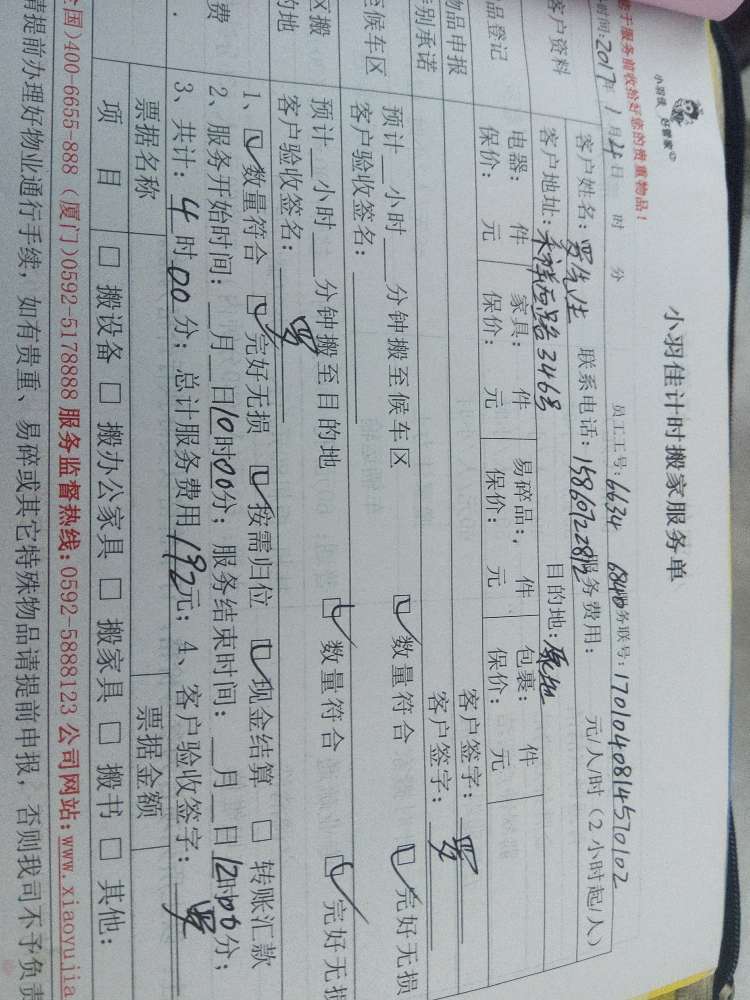 小羽佳 好管家
小羽佳计时搬家服务单
于服务前收拾好您的贵重物品!
时间:2017年1月4日 时 分 员工工号:6634 6840 务联号:1701040814570102
客户资料 客户姓名:罗先生 联系电话:15860722812 服务费用: 元/人/时(2小时起/人)
客户地址:禾祥西路346号 目的地:原地
品登记 电器: 件 家具: 件 易碎品: 件 包裹: 件
保价: 元 保价: 元 保价: 元 保价: 元
物品申报 客户签字:罗
别承诺 客户签字:罗
至候车区 预计__小时__分钟搬至候车区 数量符合 完好无损
客户验收签名:
区搬 预计__小时__分钟搬至目的地 数量符合 完好无损
的地 客户验收签名:罗
费 1、数量符合 完好无损 按需归位 现金结算 转账汇款
2、服务开始时间:__月__日10时00分;服务结束时间:__月__日12时00分;
3、共计:4时00分;总计服务费用192元;4、客户验收签字:罗
票据名称 票据金额
项目 □ 搬设备 □ 搬办公家具 □ 搬家具 □ 搬书 □ 其他:
全国)400-6655-888(厦门)0592-5178888 服务监督热线:0592-5888123 公司网站:www.xiaoyujia
请提前办理好物业通行手续,如有贵重、易碎或其它特殊物品请提前申报,否则我司不予负责